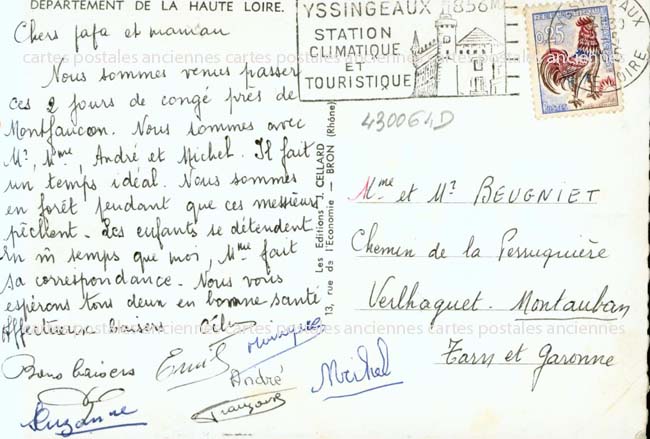 DÉPARTEMENT DE LA HAUTE LOIRE.
Chers papa et maman
Nous sommes venus passer
ces 2 jours de congé près de
Montfaucon. Nous sommes avec
Mr, Mme, André et Michel. Il fait
un temps idéal. Nous sommes
en forêt pendant que ces messieurs
pêchent. Les enfants se détendent
En m̂ temps que moi, Mme fait
sa correspondance. Nous vous
espérons tous deux en bonne santé
Affectueux baisers
Bons baisers
Monique
André
Françoise
Michel
Suzanne
YSSINGEAUX 856M
STATION
CLIMATIQUE
ET
TOURISTIQUE
YSSINGEAUX
LOIRE
0,25
430064D
Les Editions J. CELLARD
13, rue de l'Economie - BRON (Rhône)
Mme et Mr BEUGNIET
Chemin de la Perruquière
Verlhaguet. Montauban
Tarn et Garonne
cartes postales anciennes cartes postales anciennes cartes postales anciennes
cartes postales anciennes cartes postales anciennes cartes postales anciennes